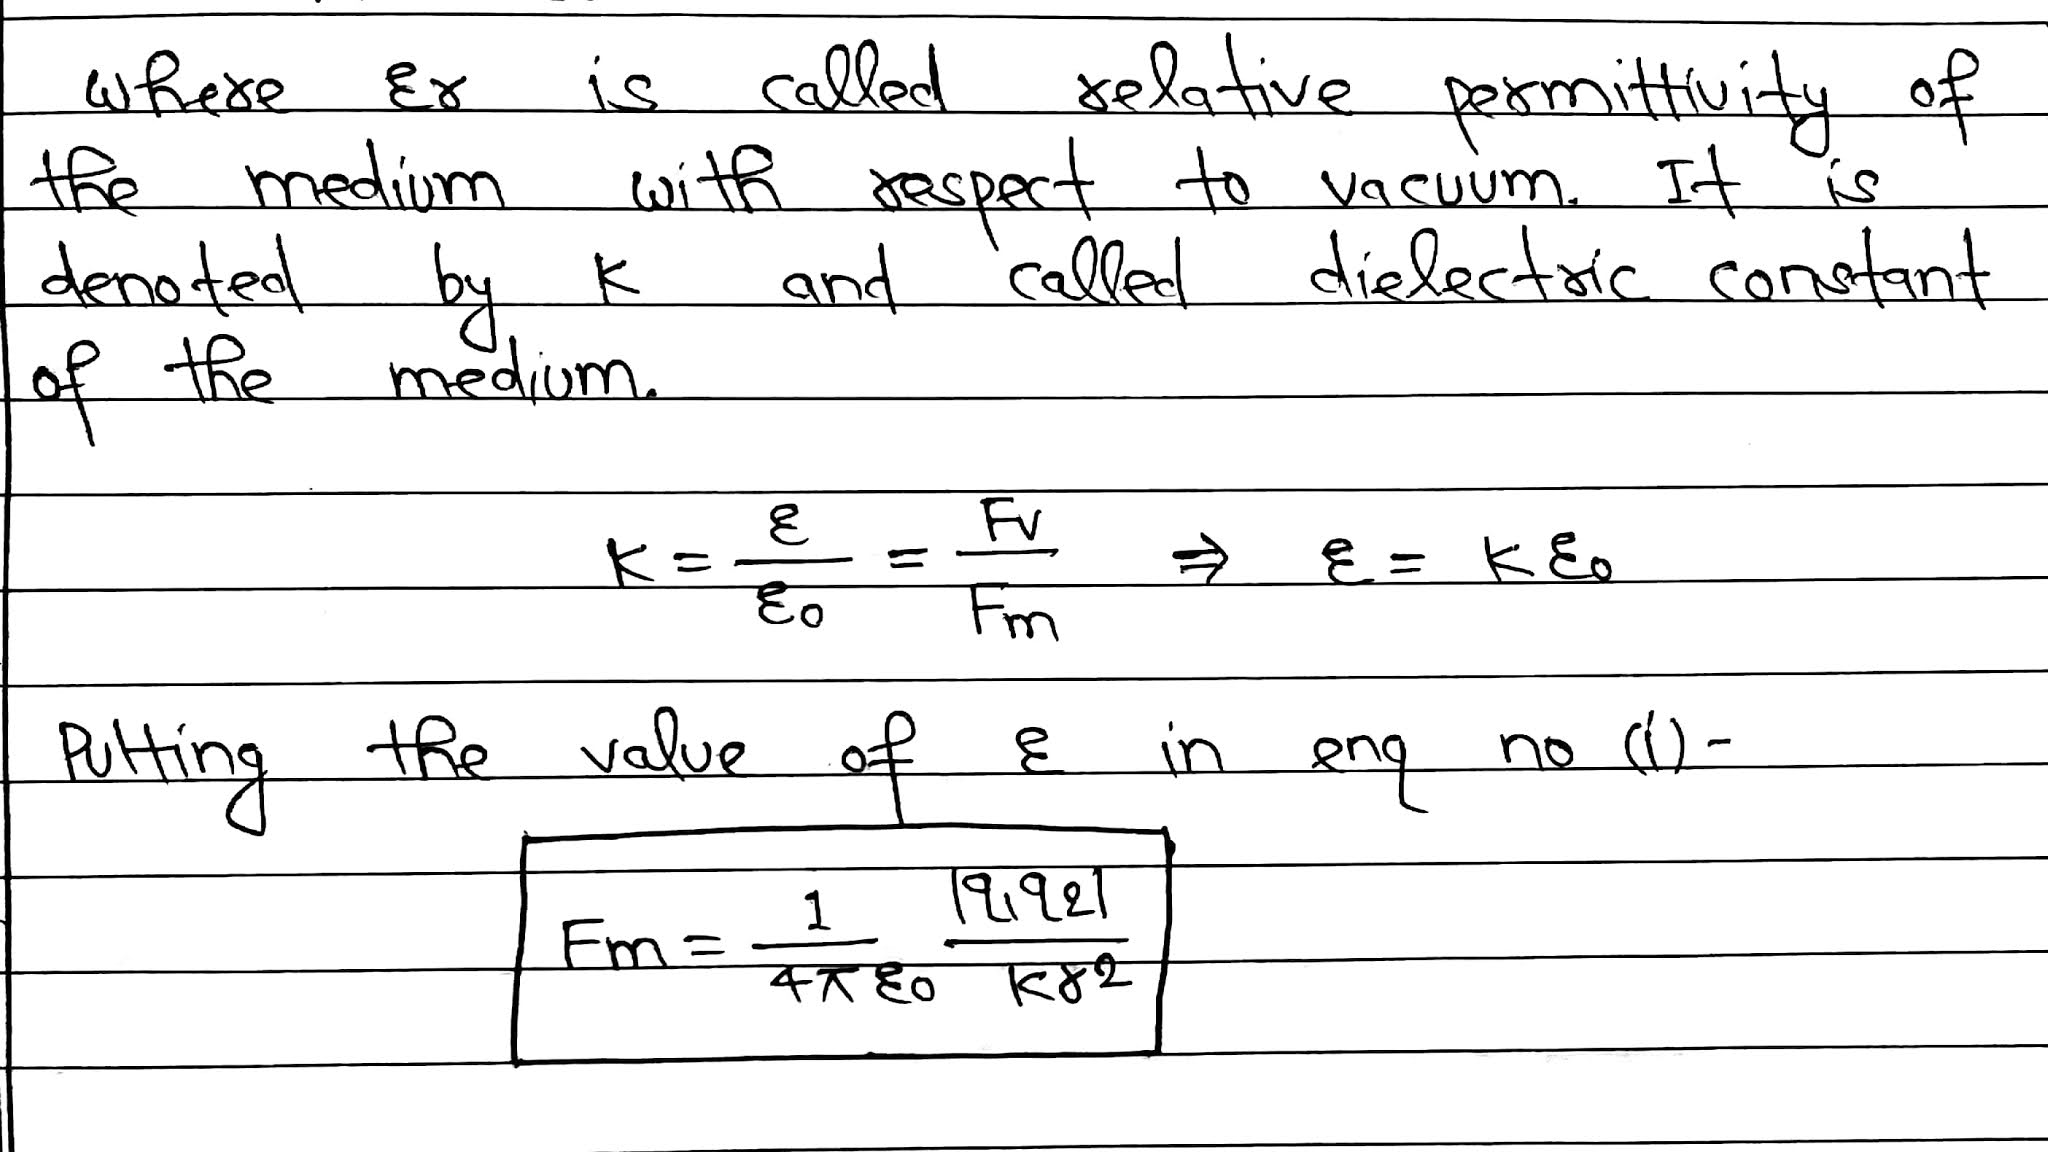 where εr is called relative permittivity of
the medium with respect to vacuum. It is
denoted by K and called dielectric constant
of the medium.
K = ε/ε0 = Fv/Fm ⇒ ε = K ε0
Putting the value of ε in enq no (i) -
Fm = 1/4πε0 |q1q2|/Kr2